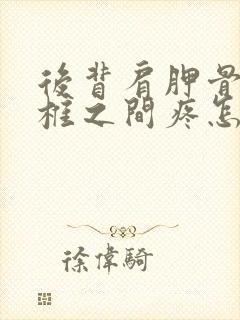 後背肩胛骨
柱之間疼怎
徐偉騎